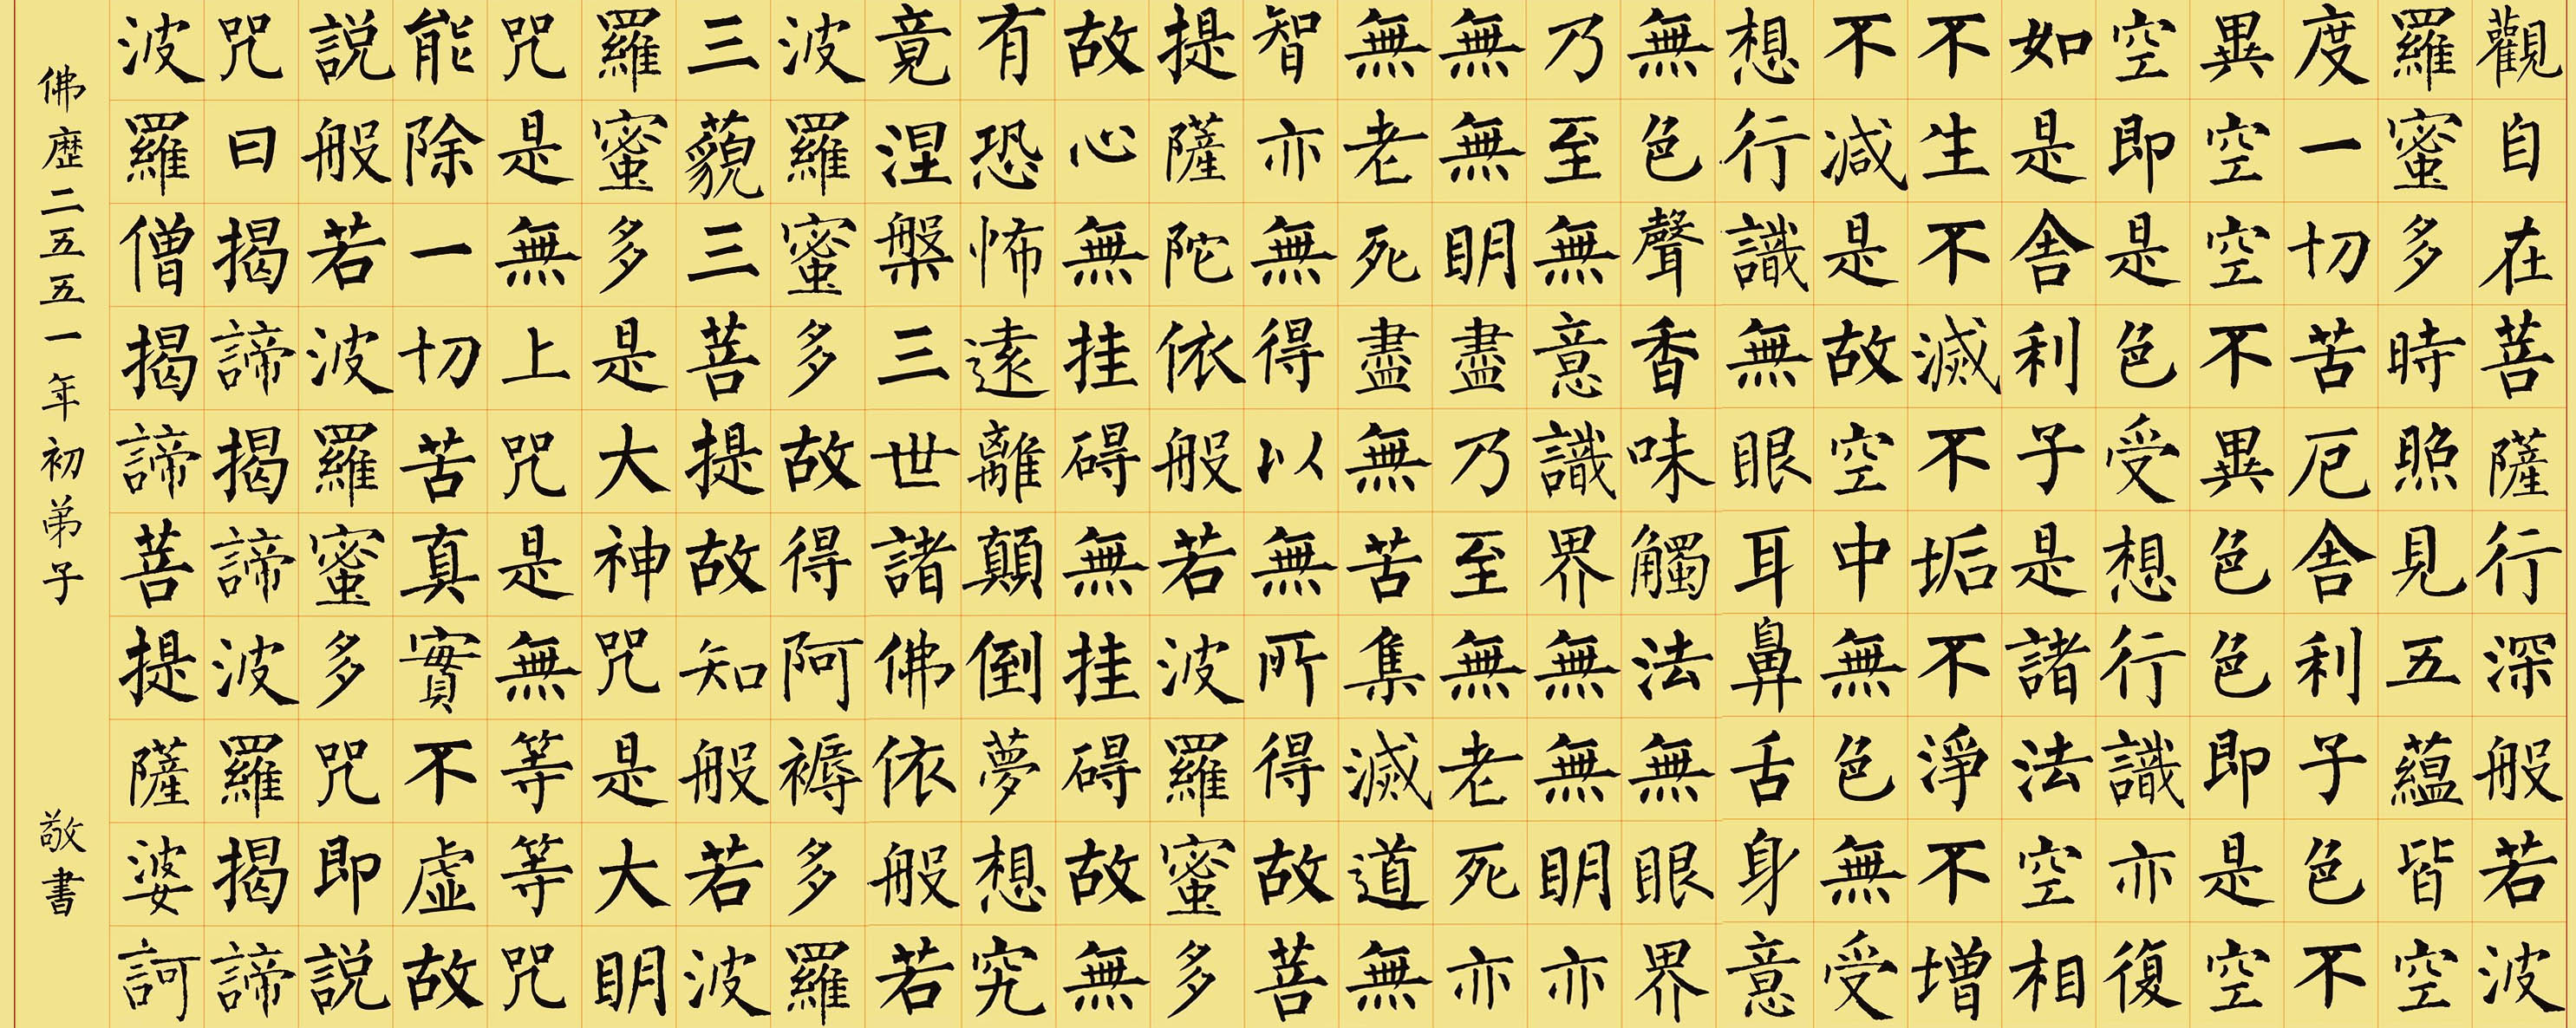 觀自在菩薩行深般若波
羅蜜多時照見五蘊皆空
度一切苦厄舍利子色不
異空空不異色色即是空
空即是色受想行識亦復
如是舍利子是諸法空相
不生不滅不垢不淨不增
不減是故空中無色無受
想行識無眼耳鼻舌身意
無色聲香味觸法無眼界
乃至無意識界無無明亦
無無明盡乃至無老死亦
無老死盡無苦集滅道無
智亦無得以無所得故菩
提薩陀依般若波羅蜜多
故心無挂碍無挂碍故無
有恐怖遠離顛倒夢想究
竟涅槃三世諸佛依般若
波羅蜜多故得阿褥多羅
三藐三菩提故知般若波
羅蜜多是大神咒是大明
咒是無上咒是無等等咒
能除一切苦真實不虛故
説般若波羅蜜多咒即説
咒曰揭諦揭諦波羅揭諦
波羅僧揭諦菩提薩婆訶
佛歷二五五一年初弟子 敬書